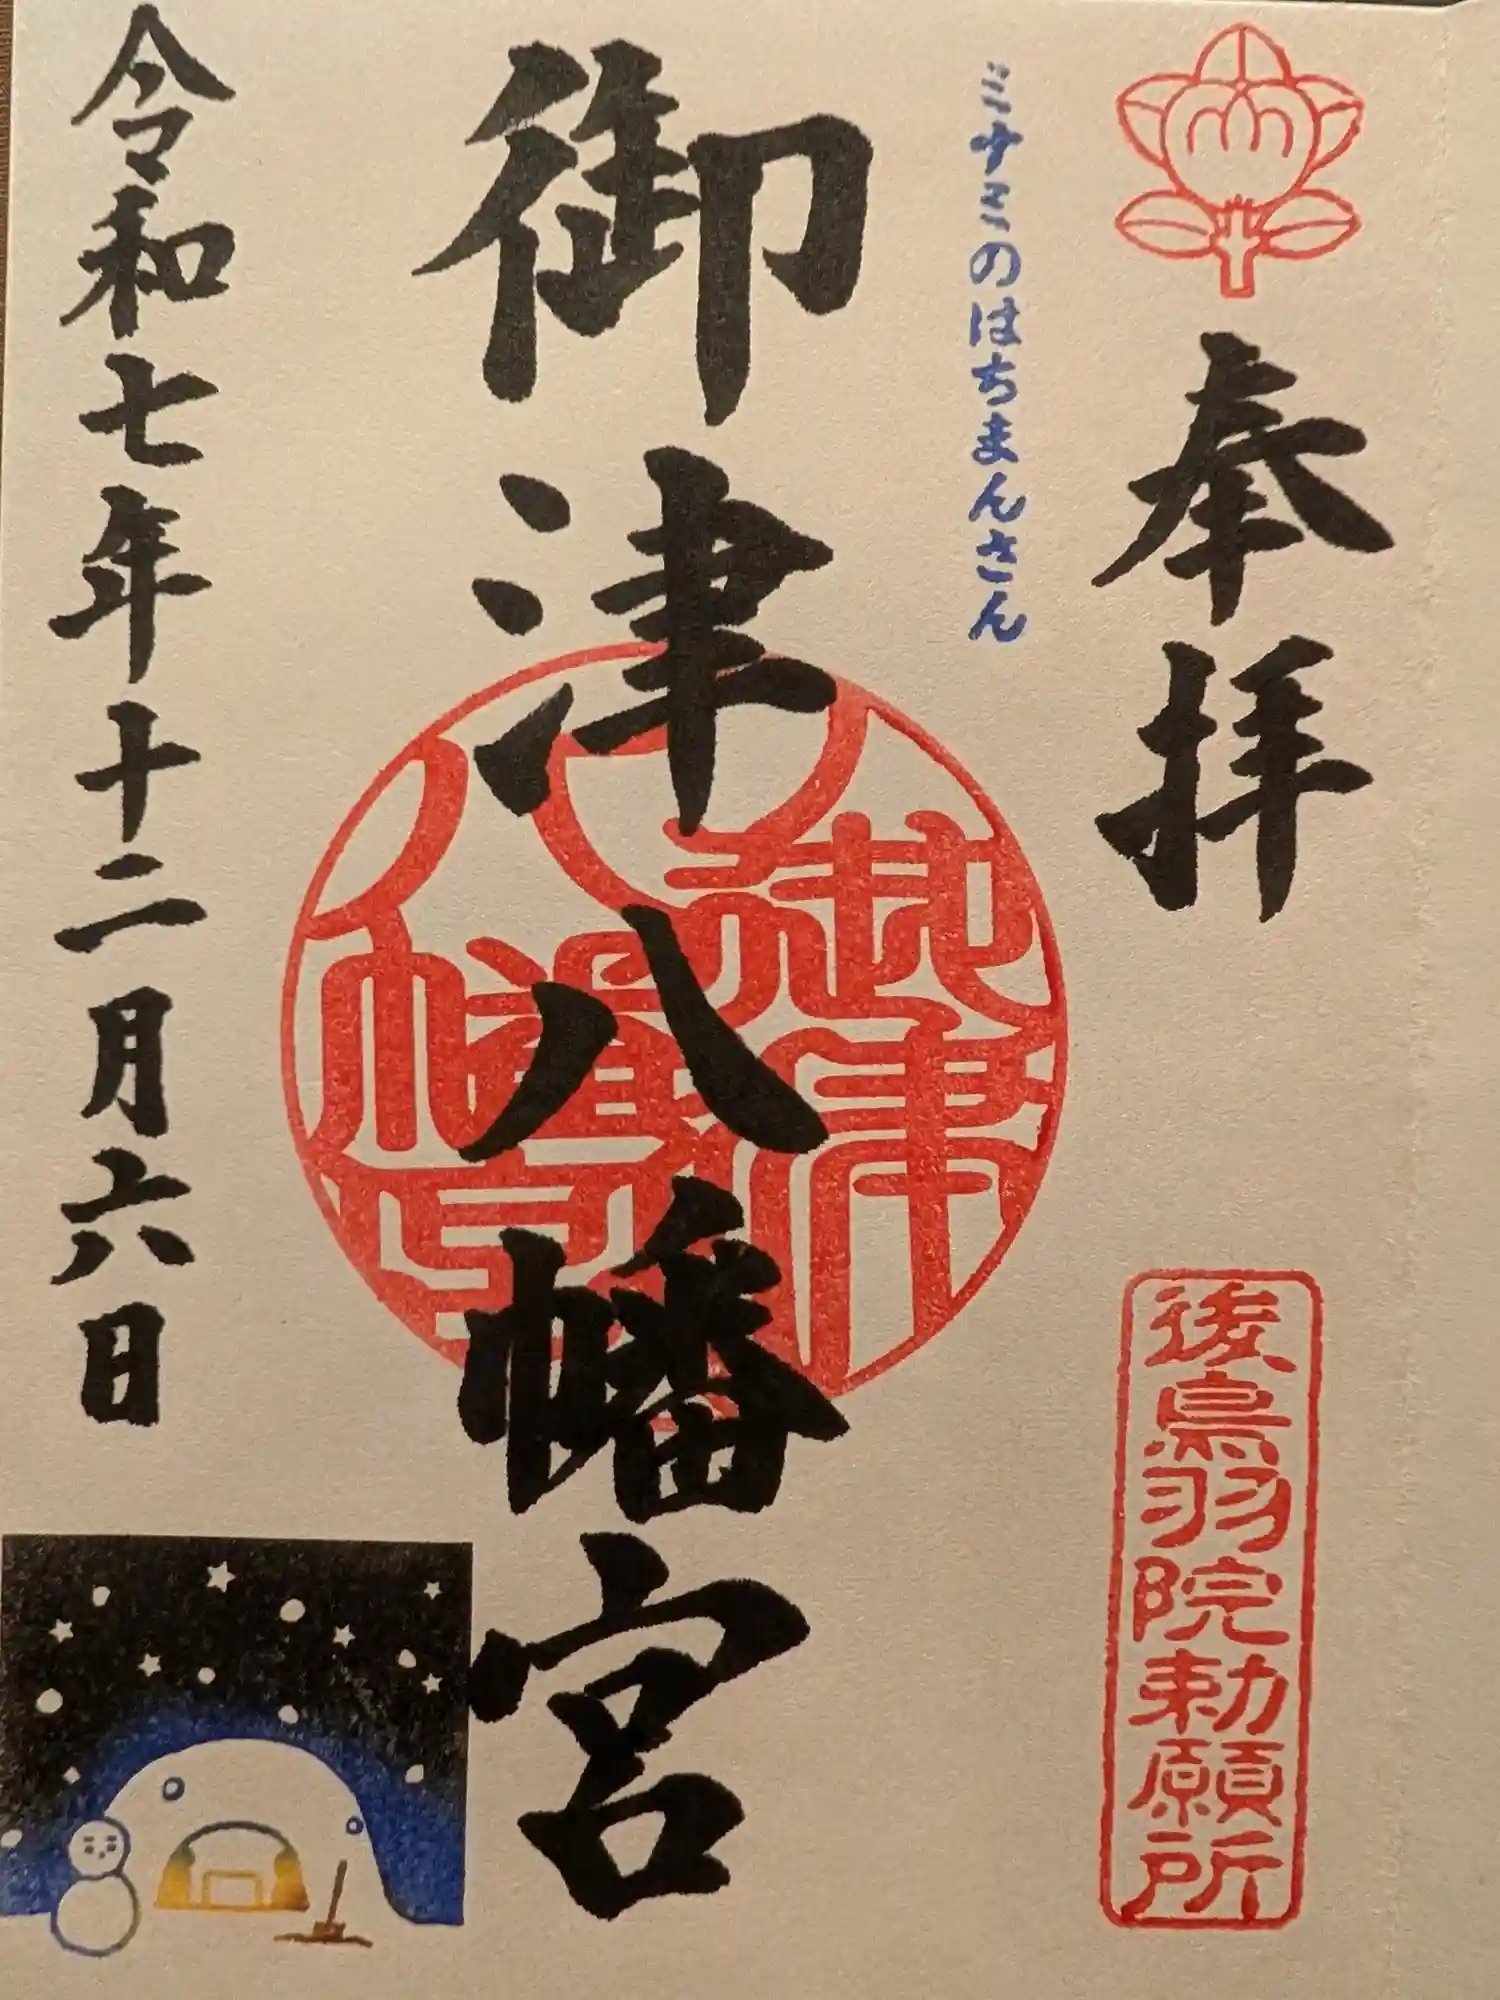 奉拝
後鳥羽院勅願所
ミナミのはちまんさん
御津八幡宮
御津八幡宮
令和七年十二月六日